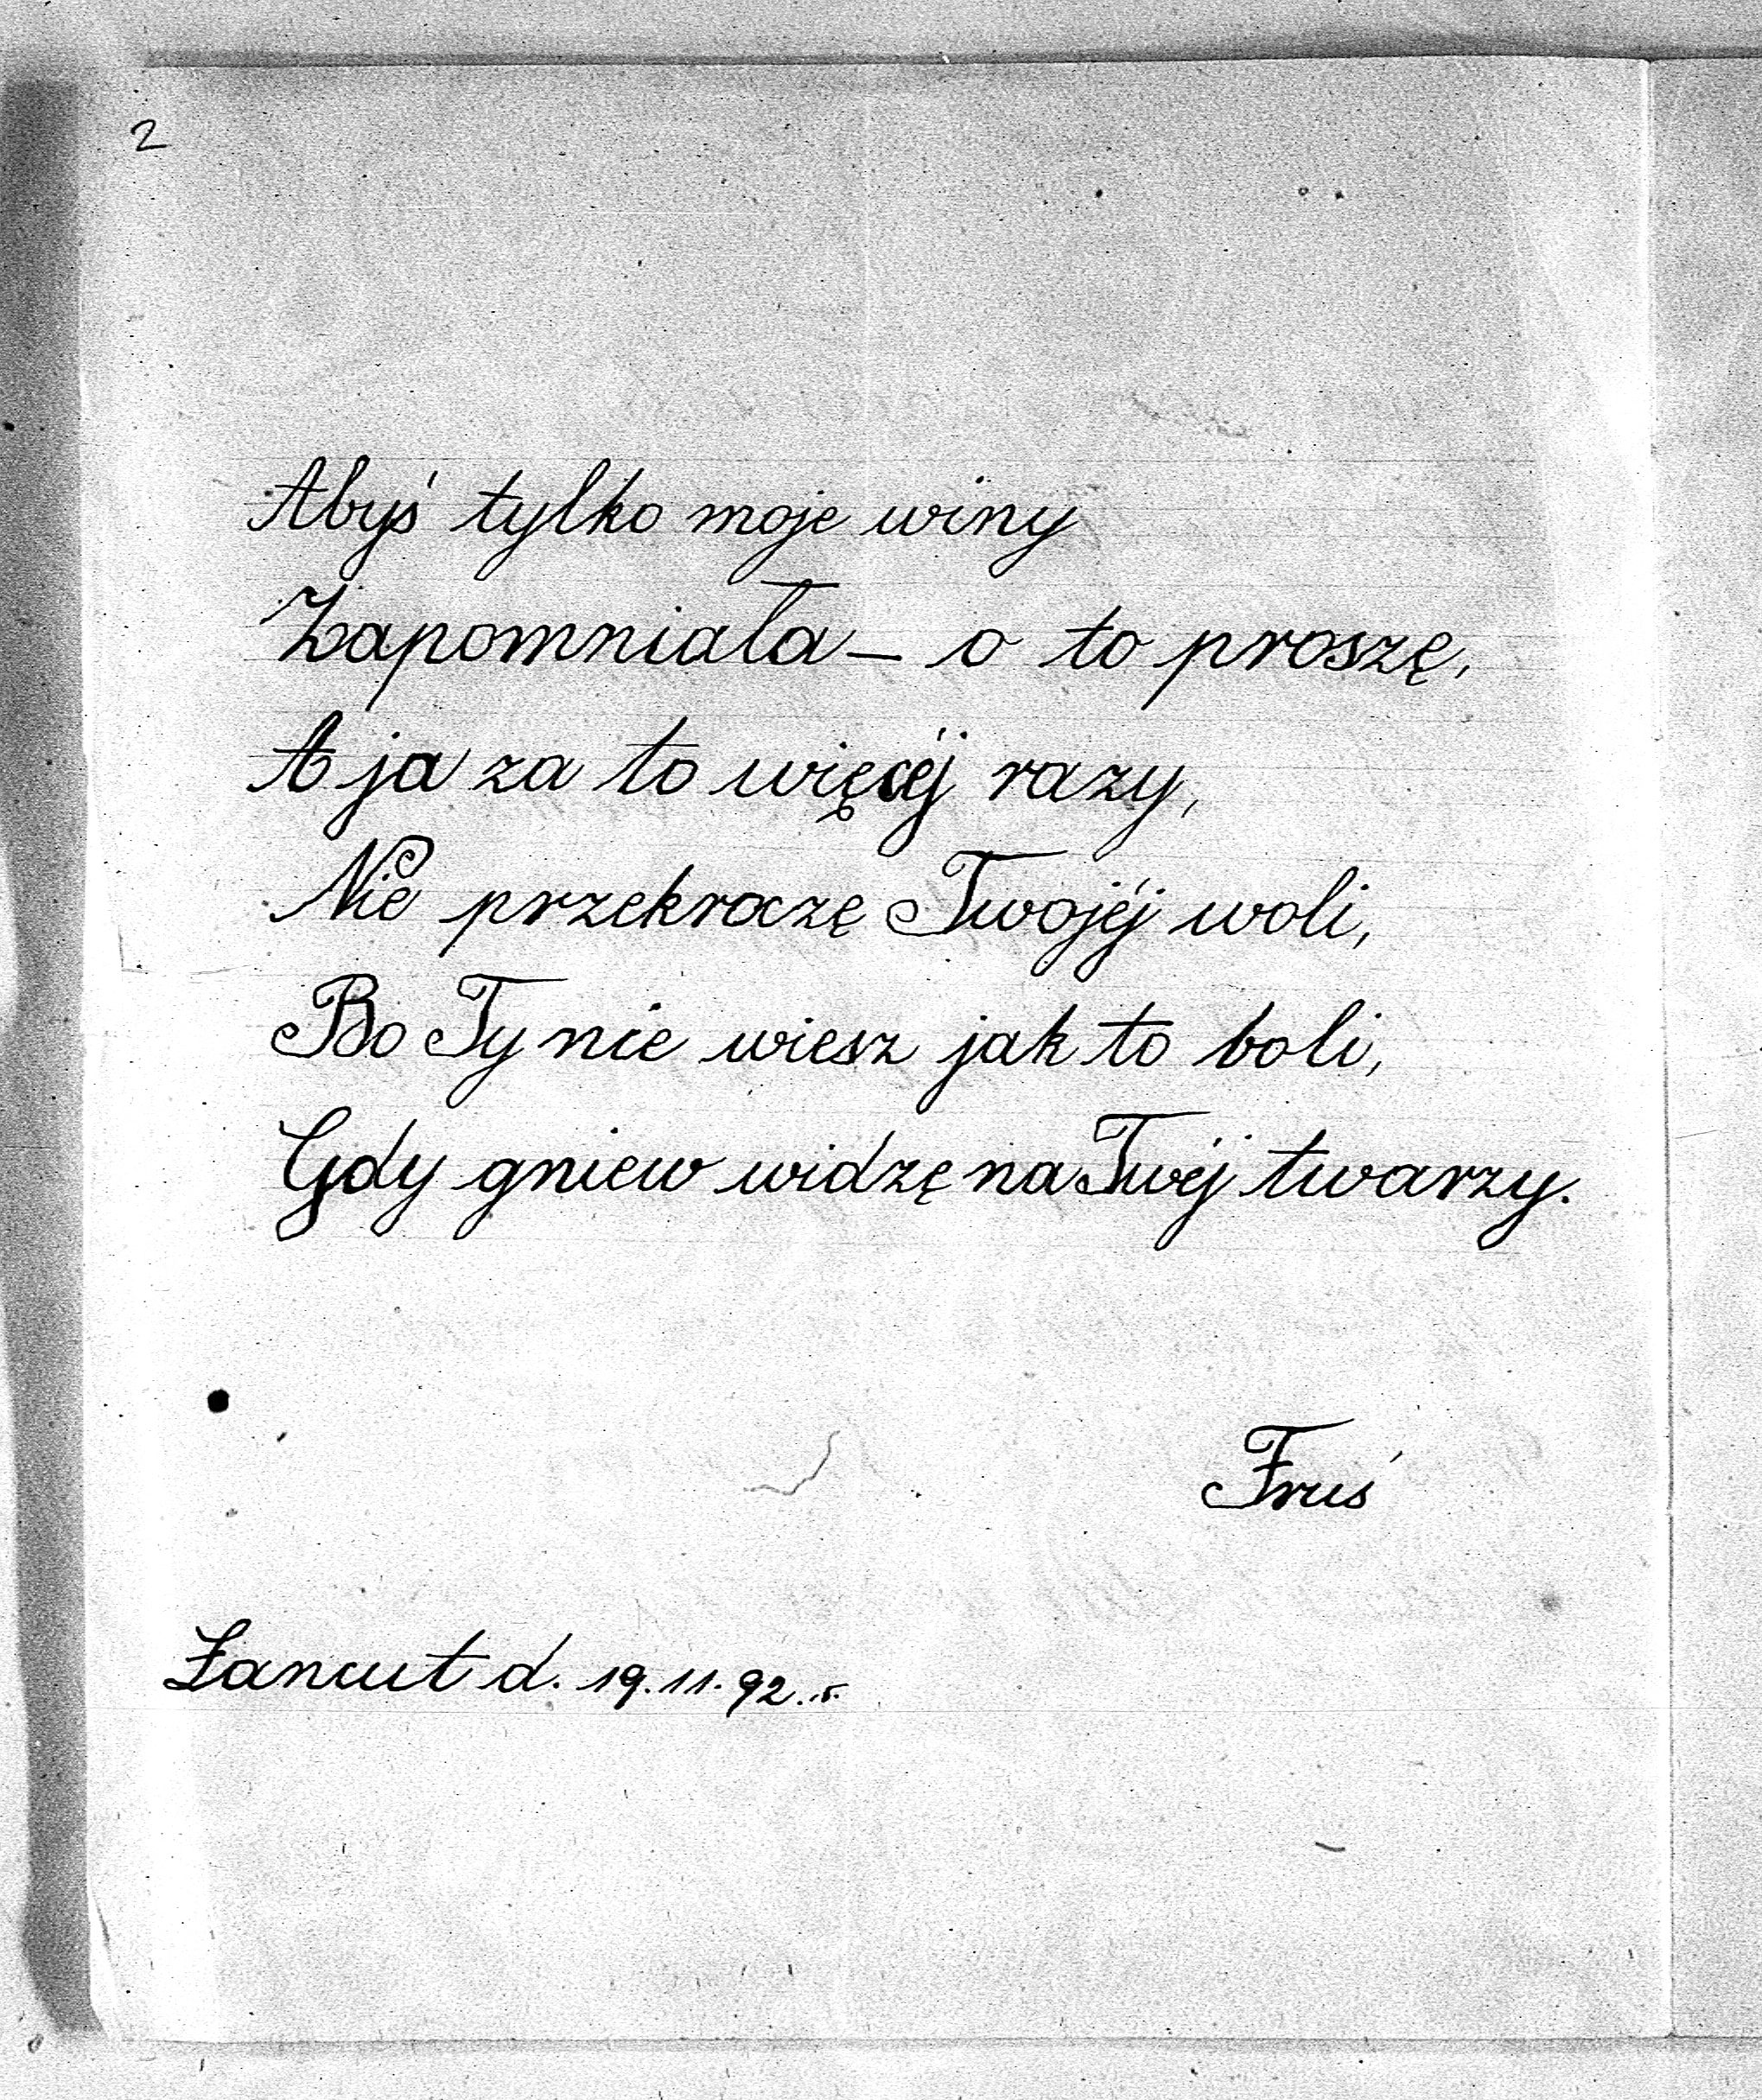 2
Abyś tylko moje winy
Zapomniała – o to proszę,
A ja za to więcéj razy,
Nie przekroczę Twojéj woli,
Bo Ty nie wiesz jak to boli,
Gdy gniew widzę na Twéj twarzy.
Fruś
Łancut d. 19.11.92.r.